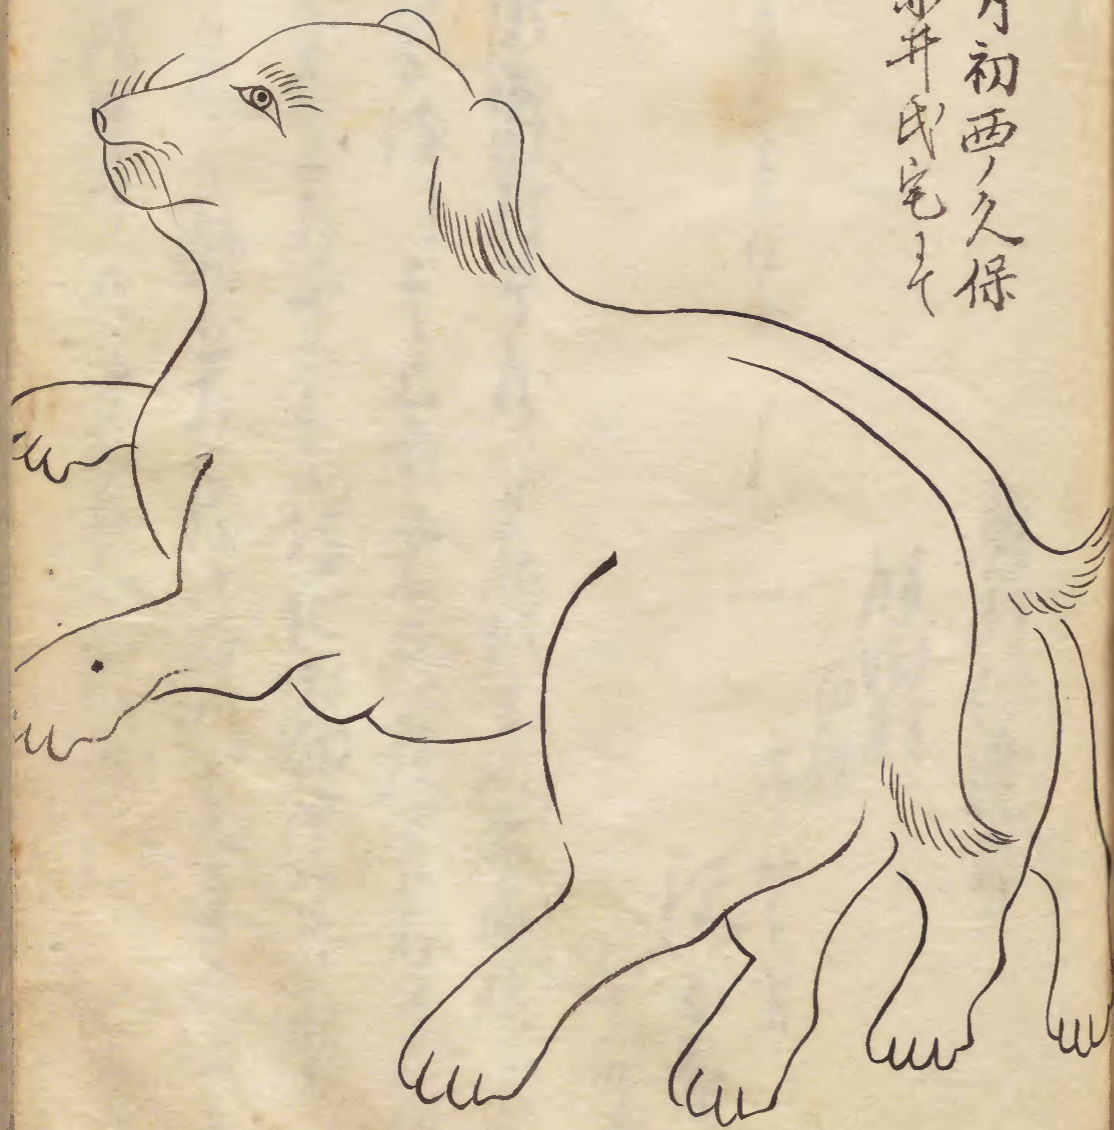 月初西ノ久保
井氏宅ニて